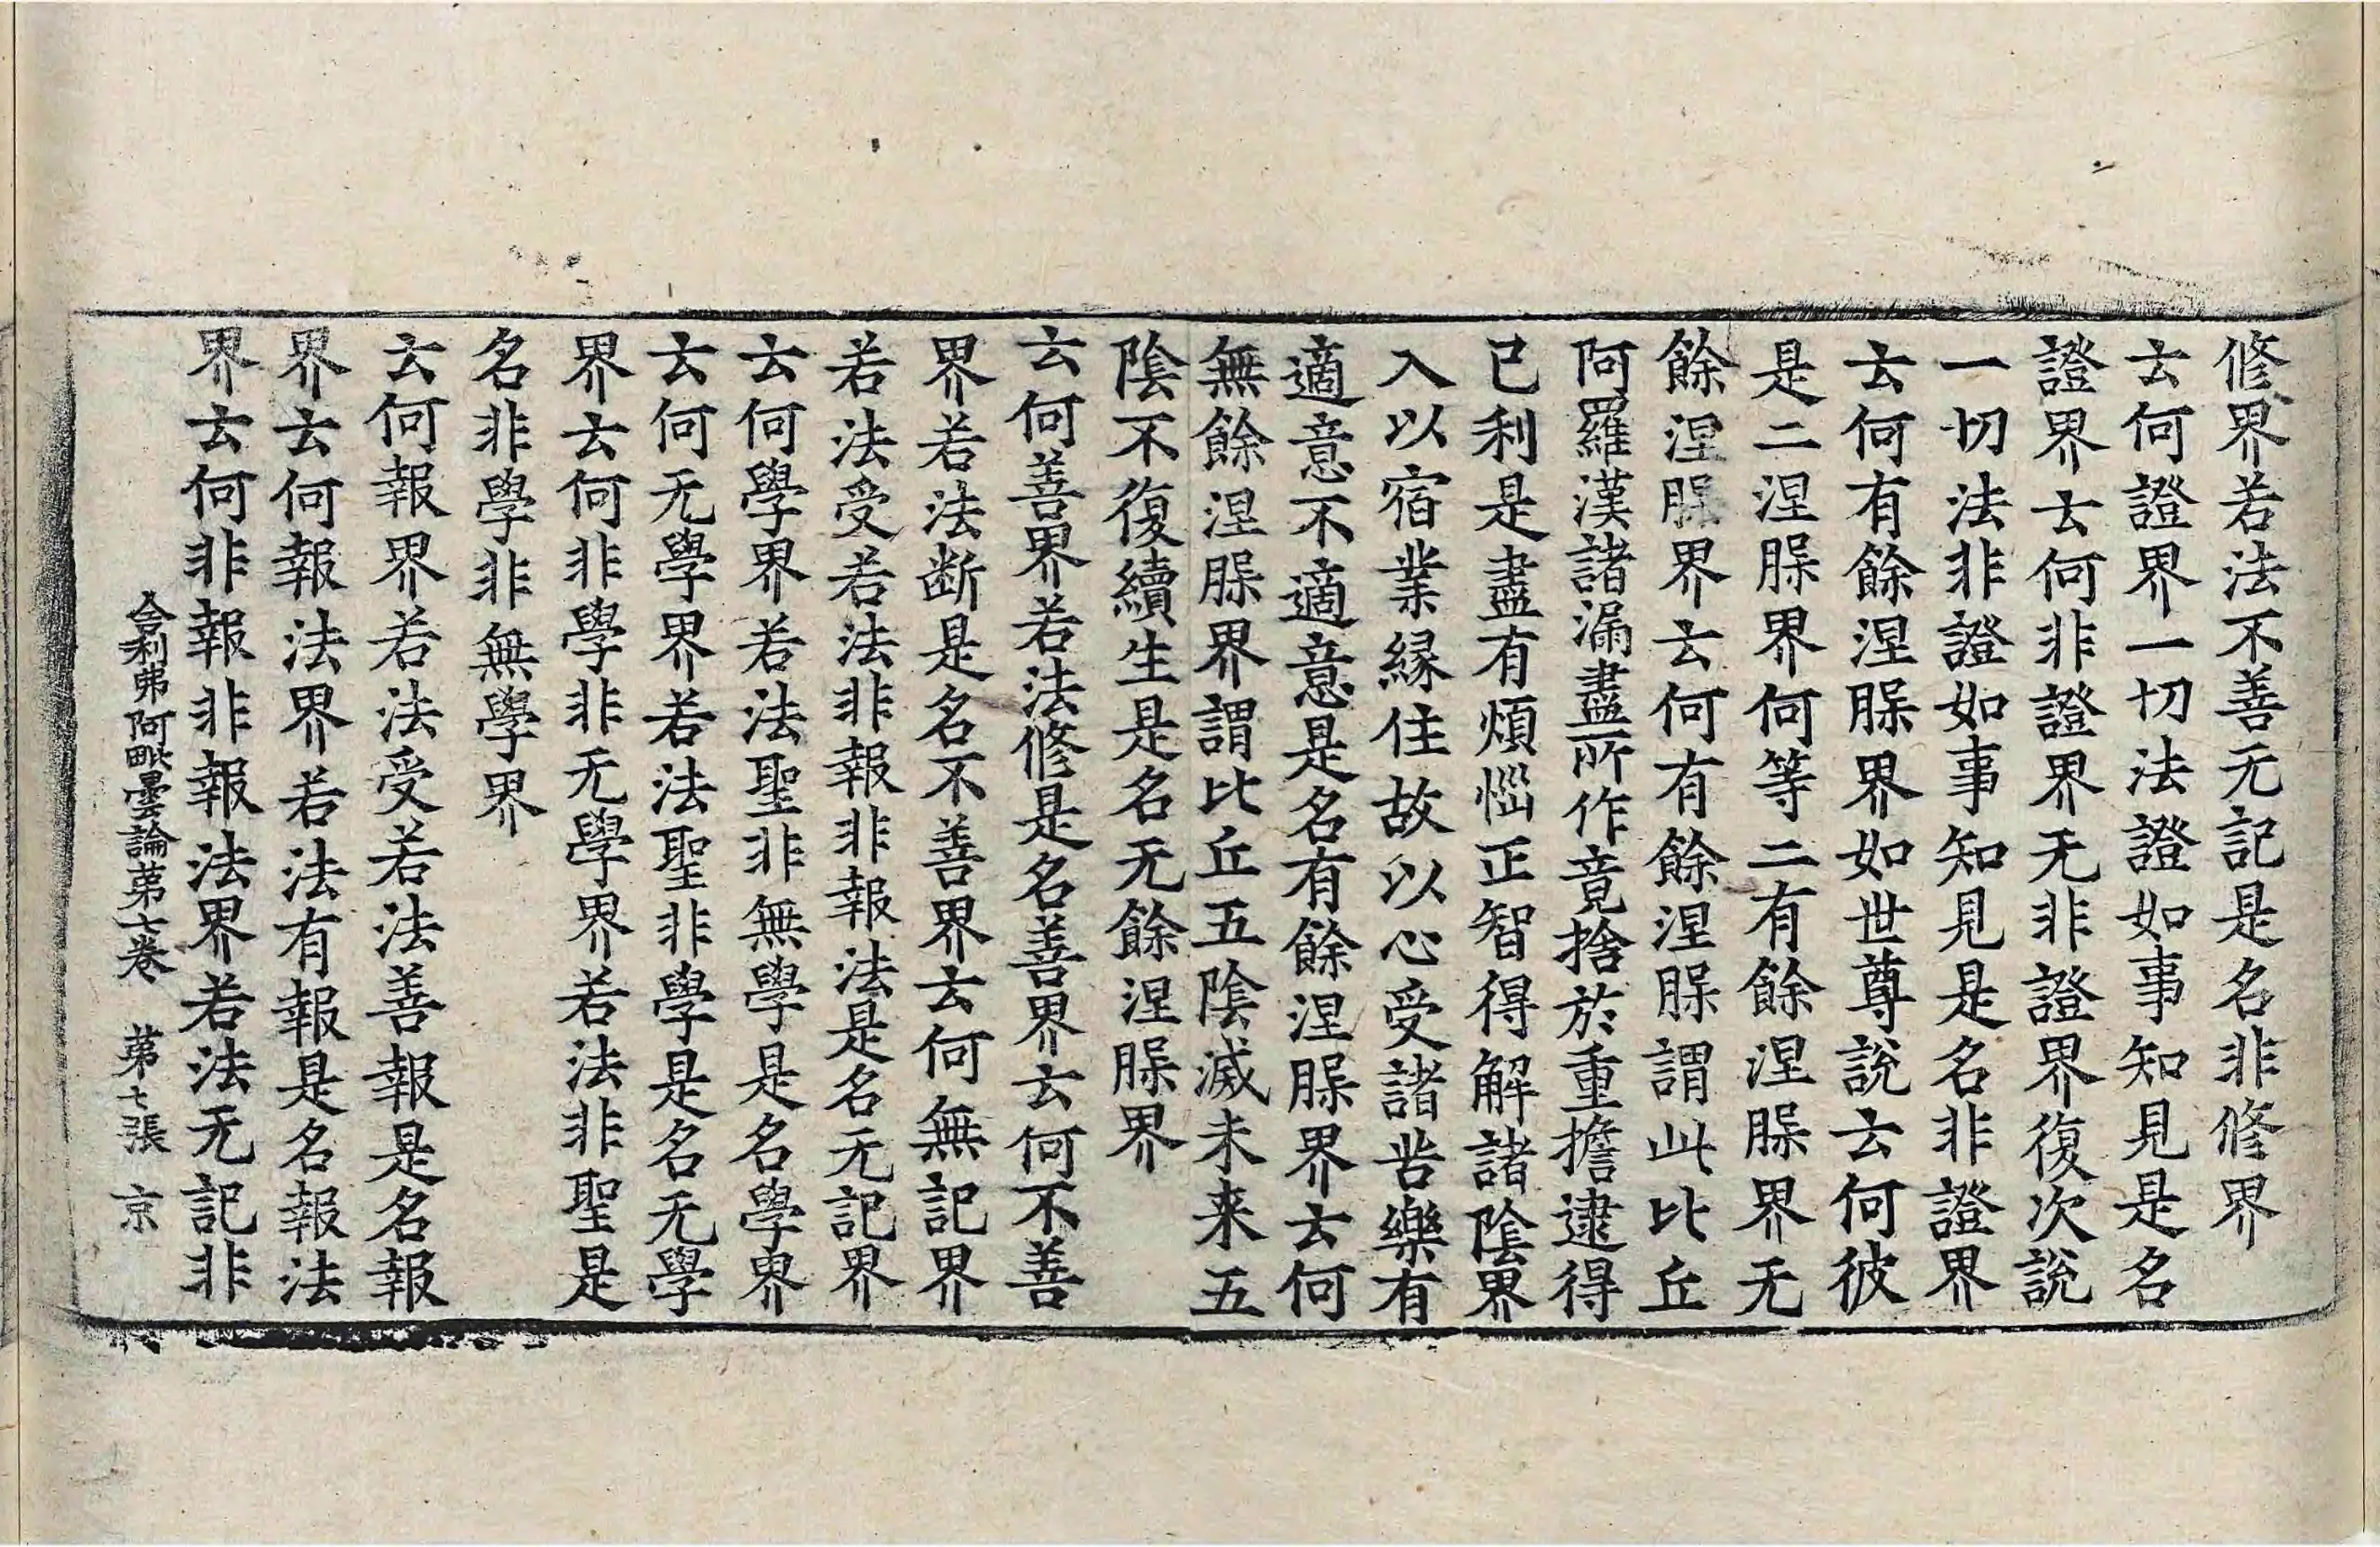 修界若法不善无記是名非修界
云何證界一切法證如事知見是名
證界云何非證界无非證界復次說
一切法非證如事知見是名非證界
云何有餘涅槃界如世尊說云何彼
是二涅槃界何等二有餘涅槃界无
餘涅槃界云何有餘涅槃謂此比丘
阿羅漢諸漏盡所作竟捨於重擔逮得
已利是盡有煩惱正智得解諸陰界
入以宿業緣住故以心受諸苦樂有
適意不適意是名有餘涅槃界云何
無餘涅槃界謂比丘五陰滅未来五
陰不復續生是名无餘涅槃界
云何善界若法修是名善界云何不善
界若法断是名不善界云何無記界
若法受若法非報非報法是名无記界
云何學界若法聖非無學是名學界
云何无學界若法聖非學是名无學
界云何非學非无學界若法非聖是
名非學非無學界
云何報界若法受若法善報是名報
界云何報法界若法有報是名報法
界云何非報非報法界若法无記非
舍利弗阿毗曇論苐七卷 苐七張 京